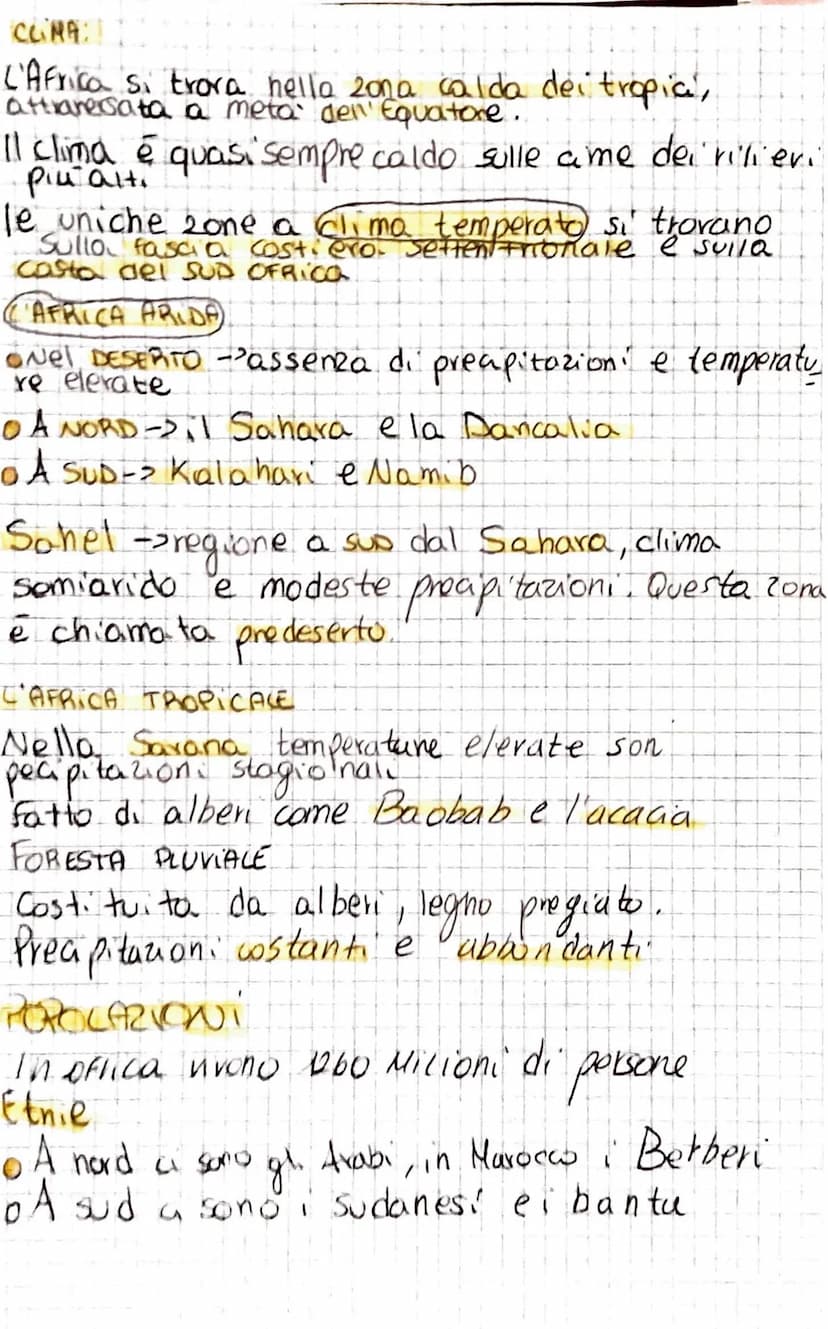 CLIMA:
L'Africa si trova nella zona calda dei tropici,
attraversata a metà dell'Equatore.
Il clima é quasi sempre caldo sulle cime dei rilievi
più alti
le uniche zone a clima temperato si trovano
sulla fascia costiera settentrionale e sulla
costa del SUD AFRICA
L'AFRICA ARIDA
Nel DESERTO -> assenza di precipitazioni e temperatu
re elevate
A NORD -> il Sahara e la Dancalia
A SUD -> Kalahari e Namib
Sahel -> regione a SUD dal Sahara, clima
semiarido e modeste precipitazioni. Questa zona
é chiamata predeserto.
L'AFRICA TROPICALE
Nella Savana temperature elevate son
pecipitazioni stagionali
fatto di alberi come Baobab e l'acacia
FORESTA PLUVIALE
Costituita da alberi, legno pregiato.
Precipitazioni costanti e abbondanti
POPOLAZIONI
In africa vivono 1260 Milioni di persone
Etnie
A nord ci sono gli Arabi, in Marocco i Berberi
A sud ci sono i sudanesi e i bantu